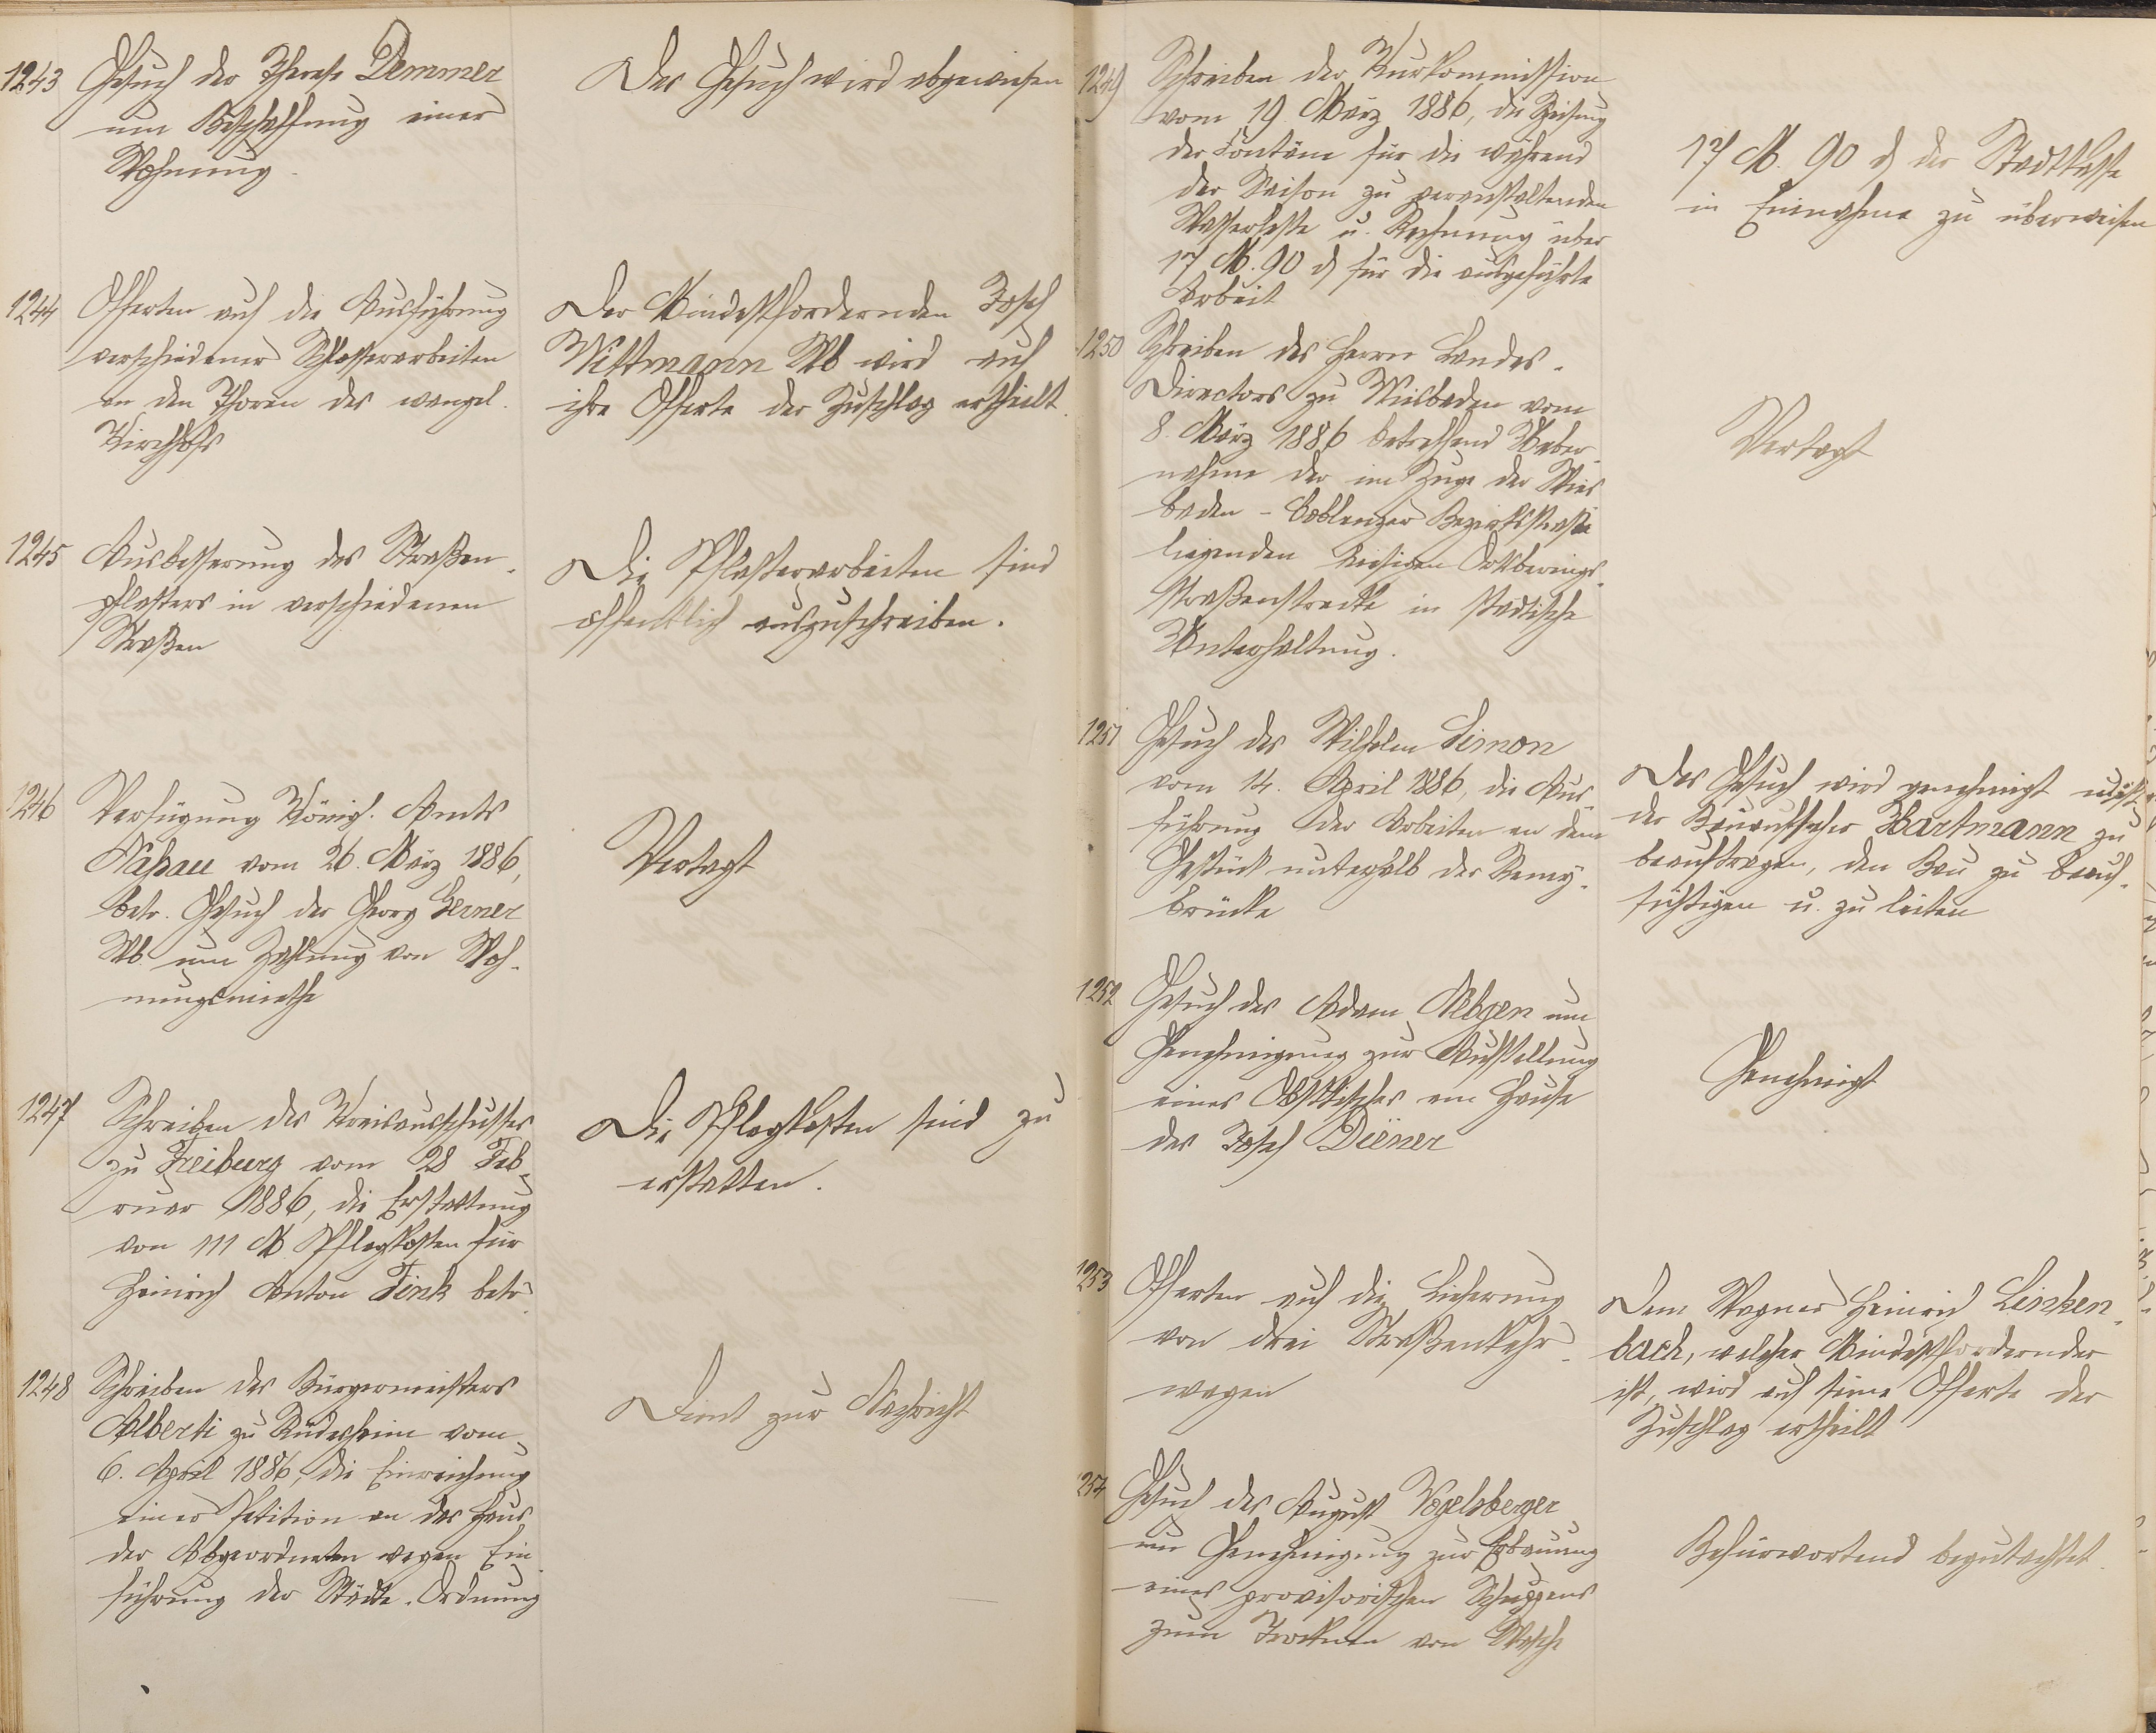 1243 Gesuch der Therese Demmer
um Beschaffung einer
Wohnung.
Das Gesuch wird abgewiesen
1244 Offerten auf die Ausführung
verschiedener Schlosserarbeiten
an den Thoren des evangel.
Kirchhofs
Der Mindestfordernden Josef
Wittmann Wb wird auf
ihre Offerte der Zuschlag ertheilt.
1245 Ausbesserung des Straßen-
pflasters in verschiedenen
Straßen
Die Pflasterarbeiten sind
öffentlich auszuschreiben.
1246 Verfügung Königl. Amts
Nassau vom 26. März 1886,
betr. Gesuch der Georg Gerner
Wb. um Zahlung von Woh-
nungsmiethe
Vertagt
1247 Schreiben des Kreisausschusses
zu Freiburg vom 28 Feb-
ruar 1886, die Erstattung
von 111 M Pflegkosten für
Heinrich Anton Fink betr.
Die Pflegkosten sind zu
erstatten.
1248 Schreiben des Bürgermeisters
Alberti zu Rüdesheim vom
6. April 1886, die Einreichung
einer Petition an das Haus
der Abgeordneten wegen Ein-
führung der Städte-Ordnung
Dient zur Nachricht
1249 Schreiben der Kurkommission
vom 19. März 1886, die Speisung
der Fontäne für die während
der Saison zu veranstaltenden
Wasserfeste u. Rechnung über
17 M. 90 d für die ausgeführte
Arbeit
17 M. 90 d der Stadtkasse
in Einnahme zu überweisen
1250 Schreiben des Herrn Landes-
Directors zu Wiesbaden vom
8. März 1886 betreffend Ueber-
nahme der im Zuge der Wies
baden - Coblenzer Bezirksstraße
liegenden hiesigen Ortsberings-
straßenstrecke in städtische
Unterhaltung.
Vertagt
1251 Gesuch des Wilhelm Simon
vom 14. April 1886, die Aus-
führung der Arbeiten an dem
Gestück unterhalb der Remy-
brücke
Das Gesuch wird genehmigt
der Bauaufseher Hartmann zu
beauftragen, den Bau zu beauf-
sichtigen u. zu leiten
1252 Gesuch des Adam Nebgen um
Genehmigung zur Aufstellung
eines Obsttisches am Hause
des Josef Diener
Genehmigt
1253 Offerten auf die Lieferung
von drei Straßenkehr-
wagen
Dem Wagner Heinrich Linken-
bach, welcher Mindestfordernder
ist, wird auf seine Offerte der
Zuschlag ertheilt
1254 Gesuch des August Vogelsberger
um Genehmigung zur Erbauung
eines provisorischen Schuppens
zum Trocknen von Wäsche
Befürwortend begutachtet.